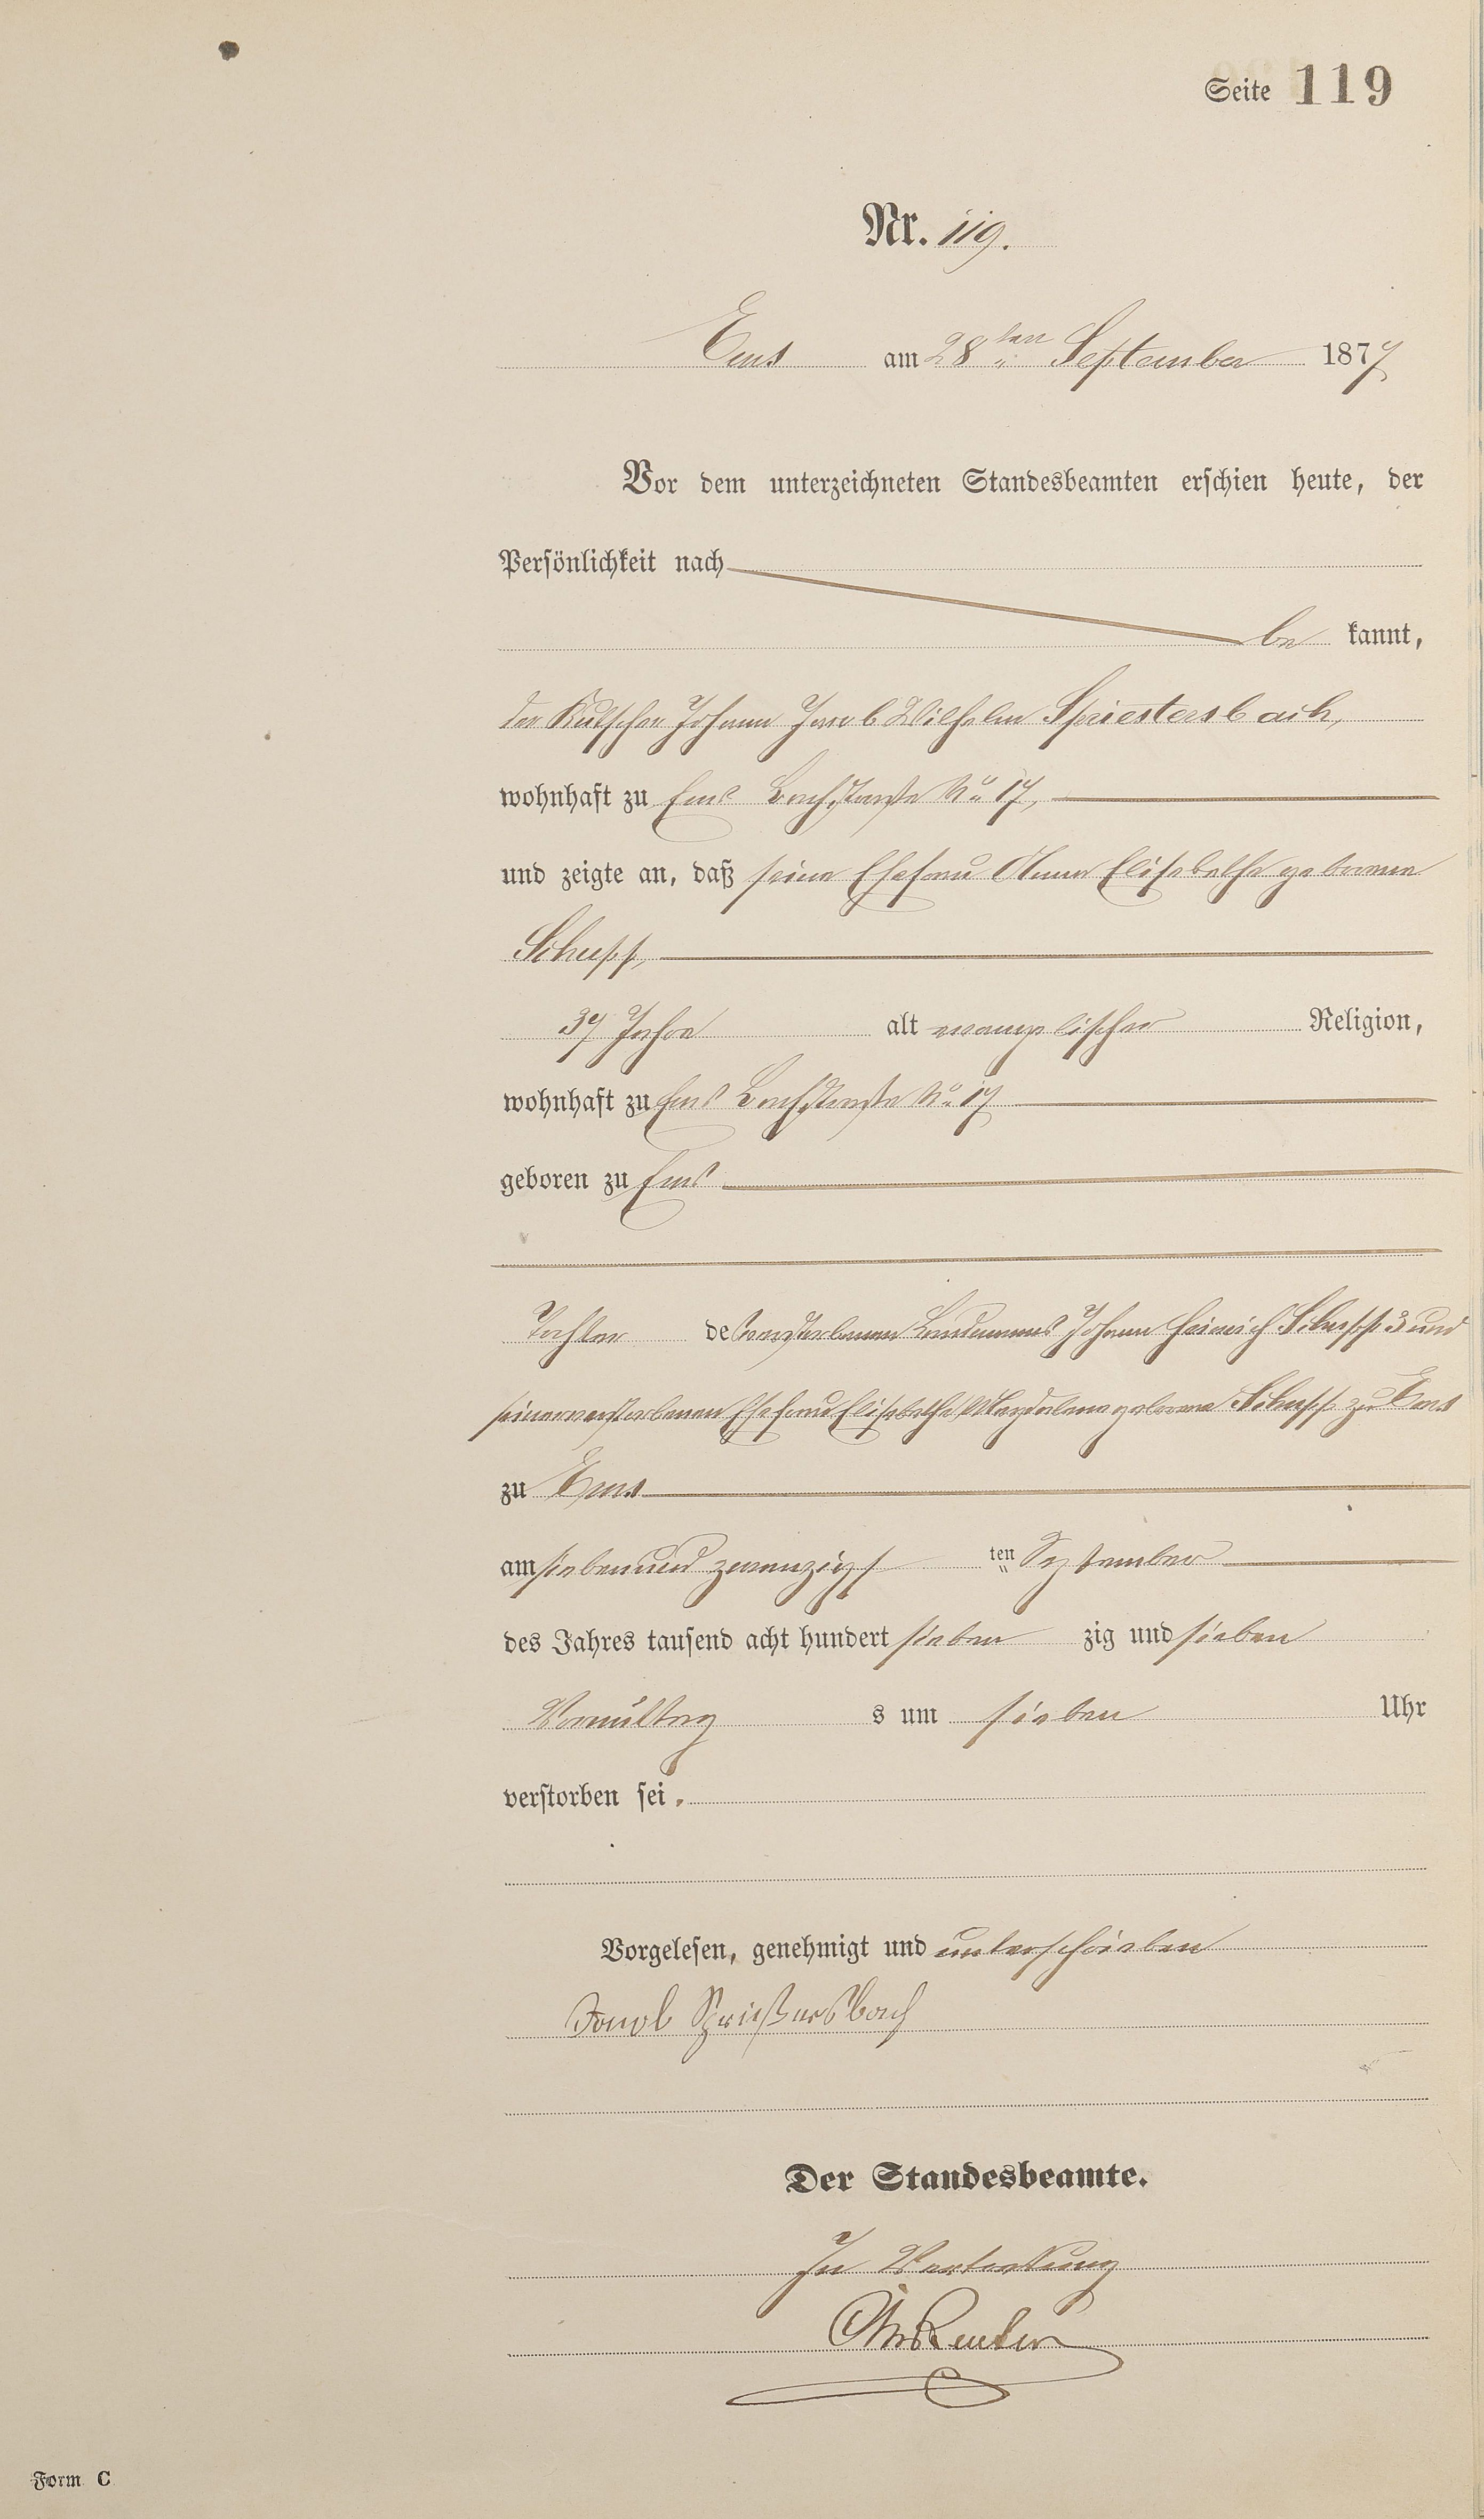 Seite 119
Nr. 119.
Ems am 28ten September 1877
Vor dem unterzeichneten Standesbeamten erschien heute, der
Persönlichkeit nach
be kannt,
der Kutscher Johann Jacob Wilhelm Spriestersbach,
wohnhaft zu Ems Bachstraße No 17,
und zeigte an, daß seine Ehefrau Anna Elisabethe geborene
Schupp,
37 Jahre alt evangelischer Religion,
wohnhaft zu Ems Bachstraße No 17
geboren zu Ems
Tochter des verstorbenen Landmanns Johann Heinrich Schupp 3 und
seiner verstorbenen Ehefrau Elisabethe Magdalene geborene Schupp zu Ems
zu Ems
am siebenundzwanzigsten September
des Jahres tausend acht hundert siebenzig und sieben
Vormittags um sieben Uhr
verstorben sei.
Vorgelesen, genehmigt und unterschrieben
Jacob Sprießersbach
Der Standesbeamte.
In Vertretung
Reuter
Form C